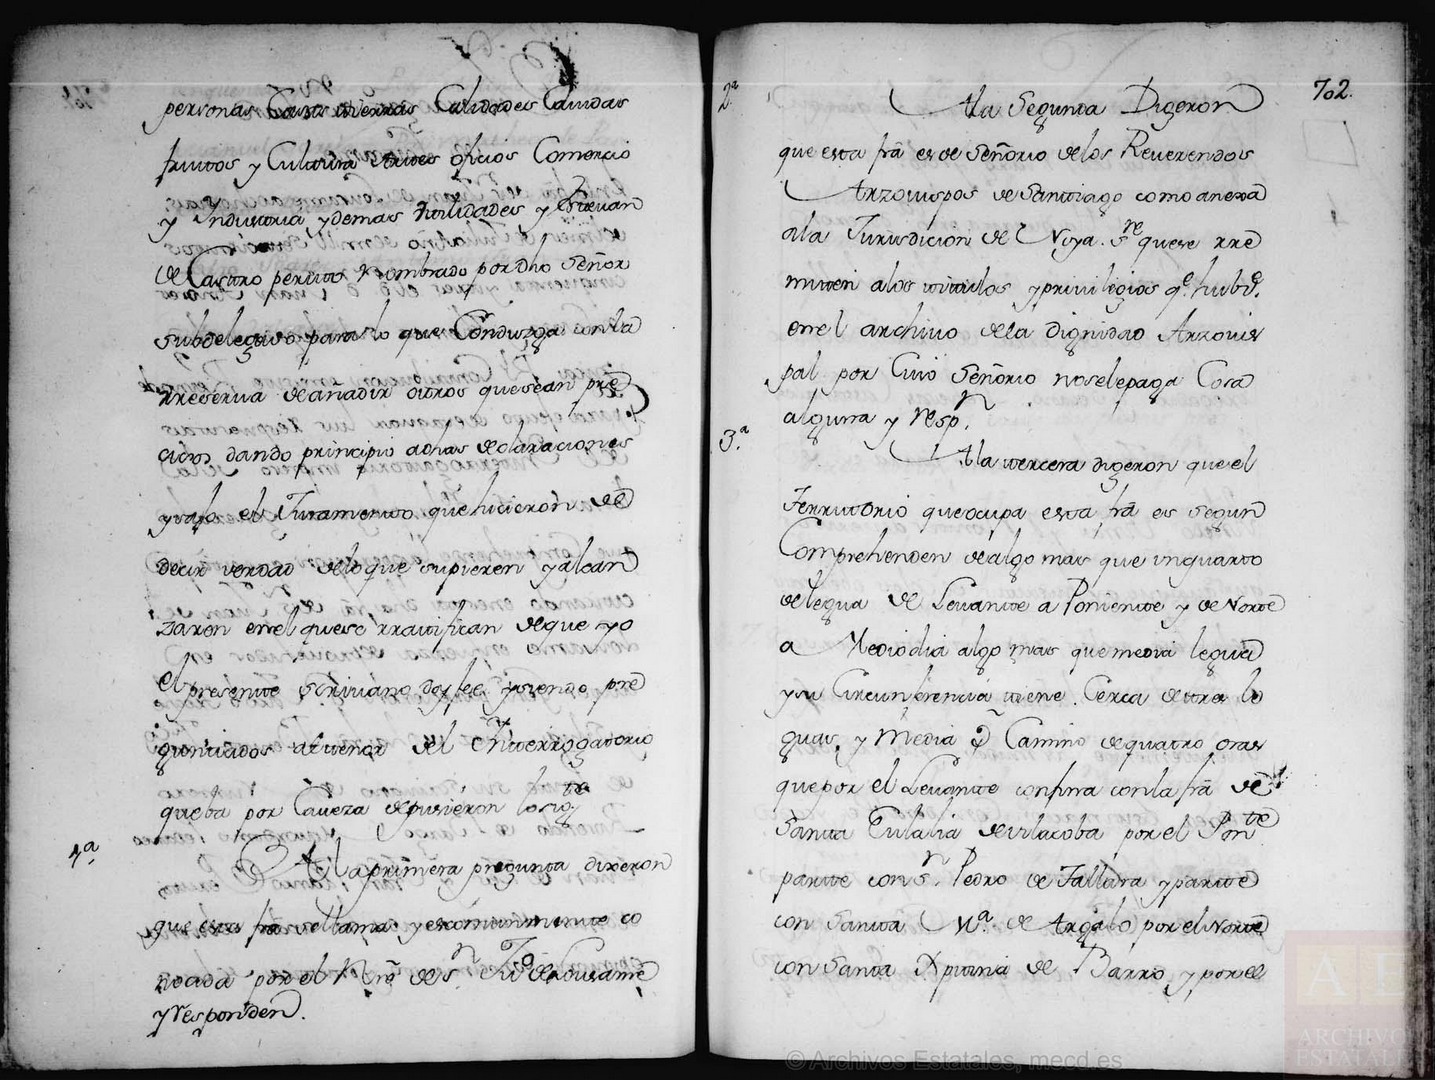 personas Casas tierras Calidades Cavidas
frutos y Cultura tratos oficios Comercio
y Yndustria, ydemas utilidades y Estevan
de Castro perito Nombrado por dho Señor
subdelegado para lo que Conduzga con la
rreserva de añadir otros que sean pre
cisos dando principio adhas declaraciones
yvajo el Juramento que hicieron de
decir verdad de lo que supieren yalcan
zaren enel que se rratifican de que yo
el presente scrivano doy fee, ysiendo pre
guntados al tenor del Ynterrogatorio
que ba por Caveza depusieron lo sigte
1ª.
A la primera pregunta dixeron
que esta frâ se llama yescomunmente co
nocida por el Nrê de Sn Juº de Lousame
y responden.
702.
2ª
Ala Segunda Digeron
que esta frâ es de Señorio de los Reverendos
Arzovispos de Santiago como anexa
ala Jurisdicion de Noya. sre que se rre
miten alos titulos yprivilegios qe. hubê.
enel archivo de la dignidad Arzovis
pal por Cuio Señorio no sele paga Cosa
alguna y respn.
3ª.
Ala tercera digeron que el
Territorio que ocupa esta frâ es segun
Comprehenden de algo mas que un quarto
de legua de Levante a Poniente y de Norte
a Mediodia algo mas que media legua
y su Circunferencia tiene Cerca de tres le
guas, y Media qe Camino de quatro oras
que por el Levante confina con la frâ de
Santa Eulalia de vilacoba por el Ponte
parte con Sn. Pedro de Tallara y parte
con Santa Mª. de Argalo por el Norte
con Santa Xptina de Barro, y por el
© Archivos Estatales, mecd.es
AE
ARCHIVOS
ESTATALES